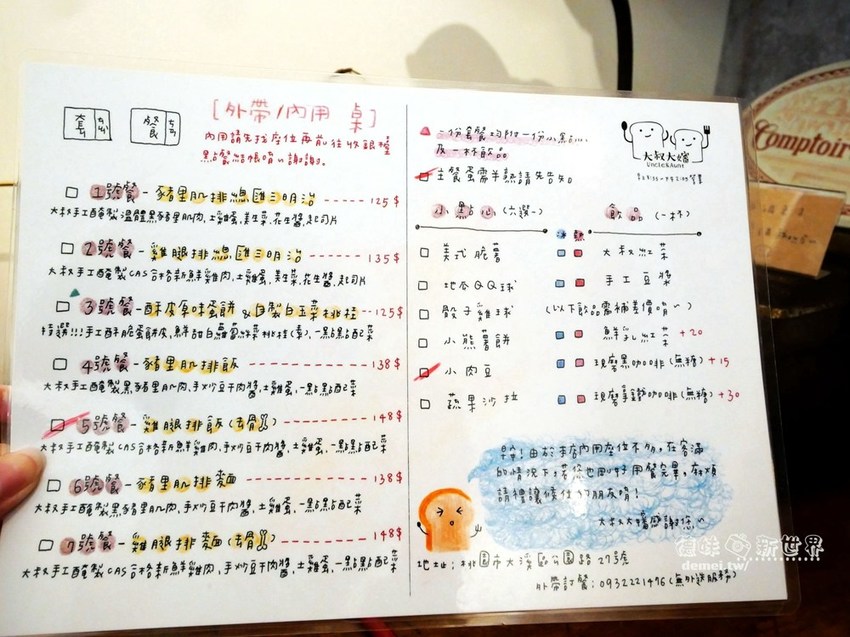 套餐
[外帶/內用 桌]
內用請先找座位再前往收銀檯
點餐結帳唷~謝謝。
1號餐-豬里肌排總匯三明治-----125$
大叔手工醃製溫體黑豬里肌肉、土雞蛋、美生菜、花生醬、起司片
2號餐-雞腿排總匯三明治-----135$
大叔手工醃製CAS合格新鮮雞肉、土雞蛋、美生菜、花生醬、起司片
3號餐-酥皮原味蛋餅&自製白玉菜桃捲--125$
特選!!!手工酥脆蛋餅皮、鮮甜白蘿蔔絲菜桃捲(素)、一點點配菜
4號餐-豬里肌排飯-----138$
大叔手工醃製黑豬里肌肉、手炒豆干肉醬、土雞蛋、一點點配菜
5號餐-雞腿排飯(去骨)-----148$
大叔手工醃製CAS合格新鮮雞肉、手炒豆干肉醬、土雞蛋、一點點配菜
6號餐-豬里肌排麵-----138$
大叔手工醃製黑豬里肌肉、手炒豆干肉醬、土雞蛋、一點點配菜
7號餐-雞腿排麵(去骨)-----148$
大叔手工醃製CAS合格新鮮雞肉、手炒豆干肉醬、土雞蛋、一點點配菜
一份套餐均附一份小點心、
及一杯飲品
主餐蛋需半熟請先告知。
大叔大嬸
Uncle&Aunt
小點心(六選一)
美式脆薯
地瓜QQ球
骰子雞球
小熊薯餅
小肉豆
蔬果沙拉
飲品(一杯)
冰 熱
大叔紅茶
手工豆漿
(以下飲品需補差價唷~)
鮮乳紅茶 +20
現磨黑咖啡(無糖) +15
現磨拿鐵咖啡(無糖) +30
哈!由於本店內用座位不多,在客滿
的情況下,若您也剛好用餐完畢,麻煩
請禮讓候位的朋友唷!
大叔大嬸感謝您~
地址:桃園市大溪區公園路27號
外帶訂餐:0932221476(無外送服務)
Comptoir
億味新世界
demei.tw/